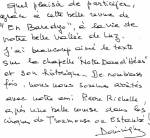 Quel plaisir de participer,
grâce à cette belle revue de
"En Baredyo", à la vie de
notre belle vallée de Luz.
J'ai beaucoup aimé le texte
sur la chapelle "Notre Dame d'Héas"
et son historique. De nombreuses
fois, nous nous sommes arrêtés
avec notre ami Pierre Richelle
après une belle course dans les
cirques de Troumouse ou Estaubé!
Dominique